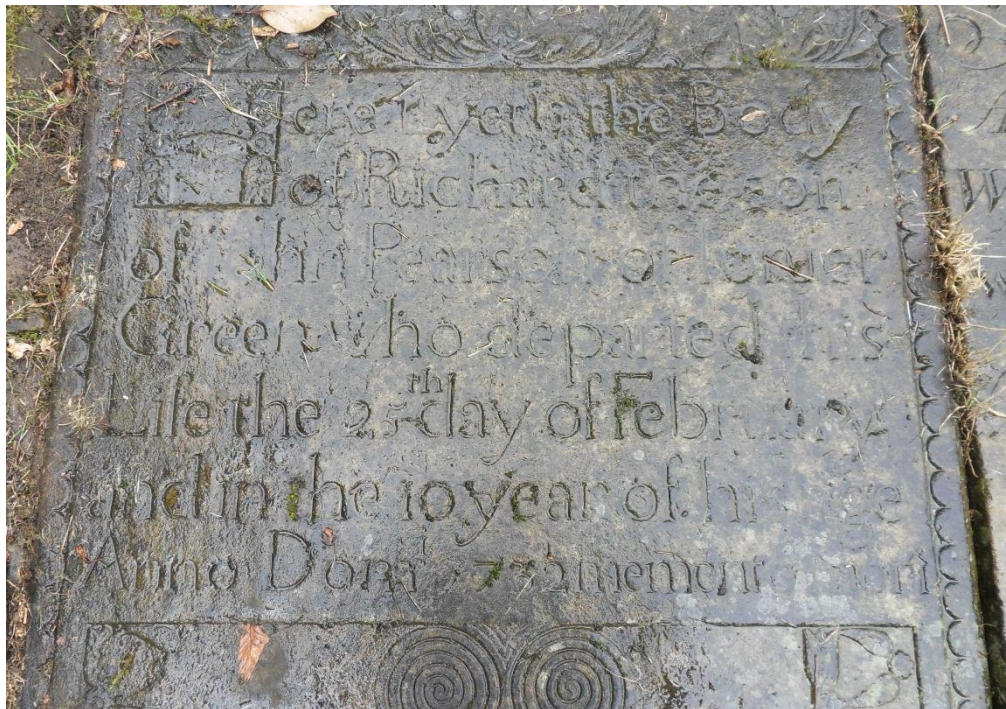 Here Lyeth the Body
of Richard the son
of John Pearson of lower
Green who departed this
Life the 25th day of February
and in the 10 year of his age
Anno Dom memento mori
W